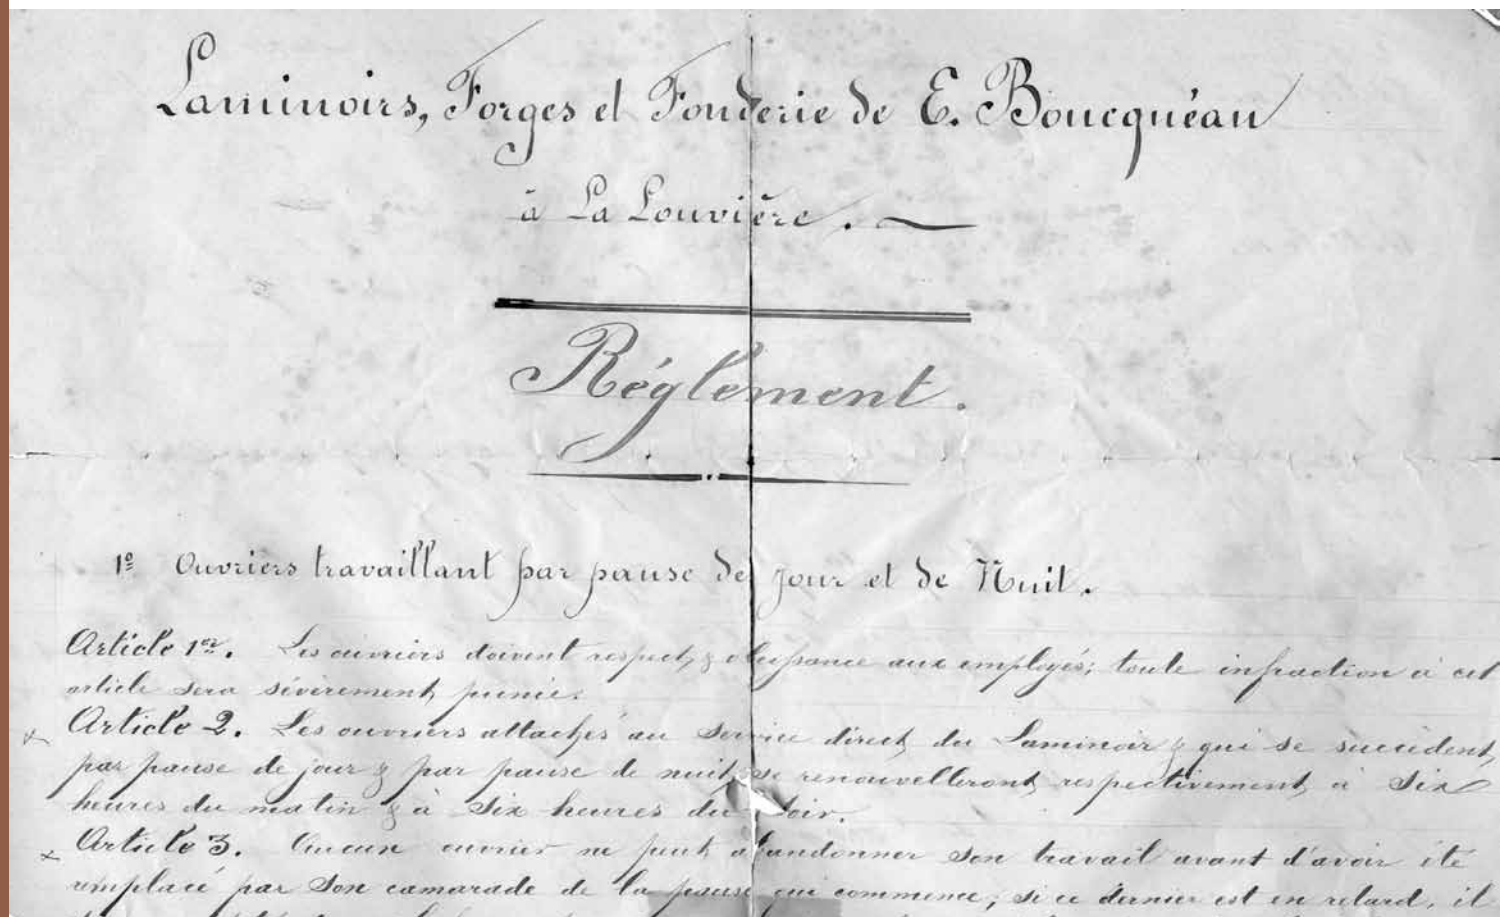 Laminoirs, Forges et Fonderie de E. Boucquéau
à La Louvière.
Réglement.
1º Ouvriers travaillant par pause de jour et de Nuit.
Article 1er. Les ouvriers doivent respect & obeissance aux employés; toute infraction à cet
article sera sévèrement punie.
Article 2. Les ouvriers attachés au service direct du Laminoir & qui se succèdent
par pause de jour & par pause de nuit se renouvelleront respectivement à Six
heures du matin & à Six heures du soir.
Article 3. Aucun ouvrier ne peut abandonner son travail avant d'avoir été
remplacé par son camarade de la pause qui commence; si ce dernier est en retard, il